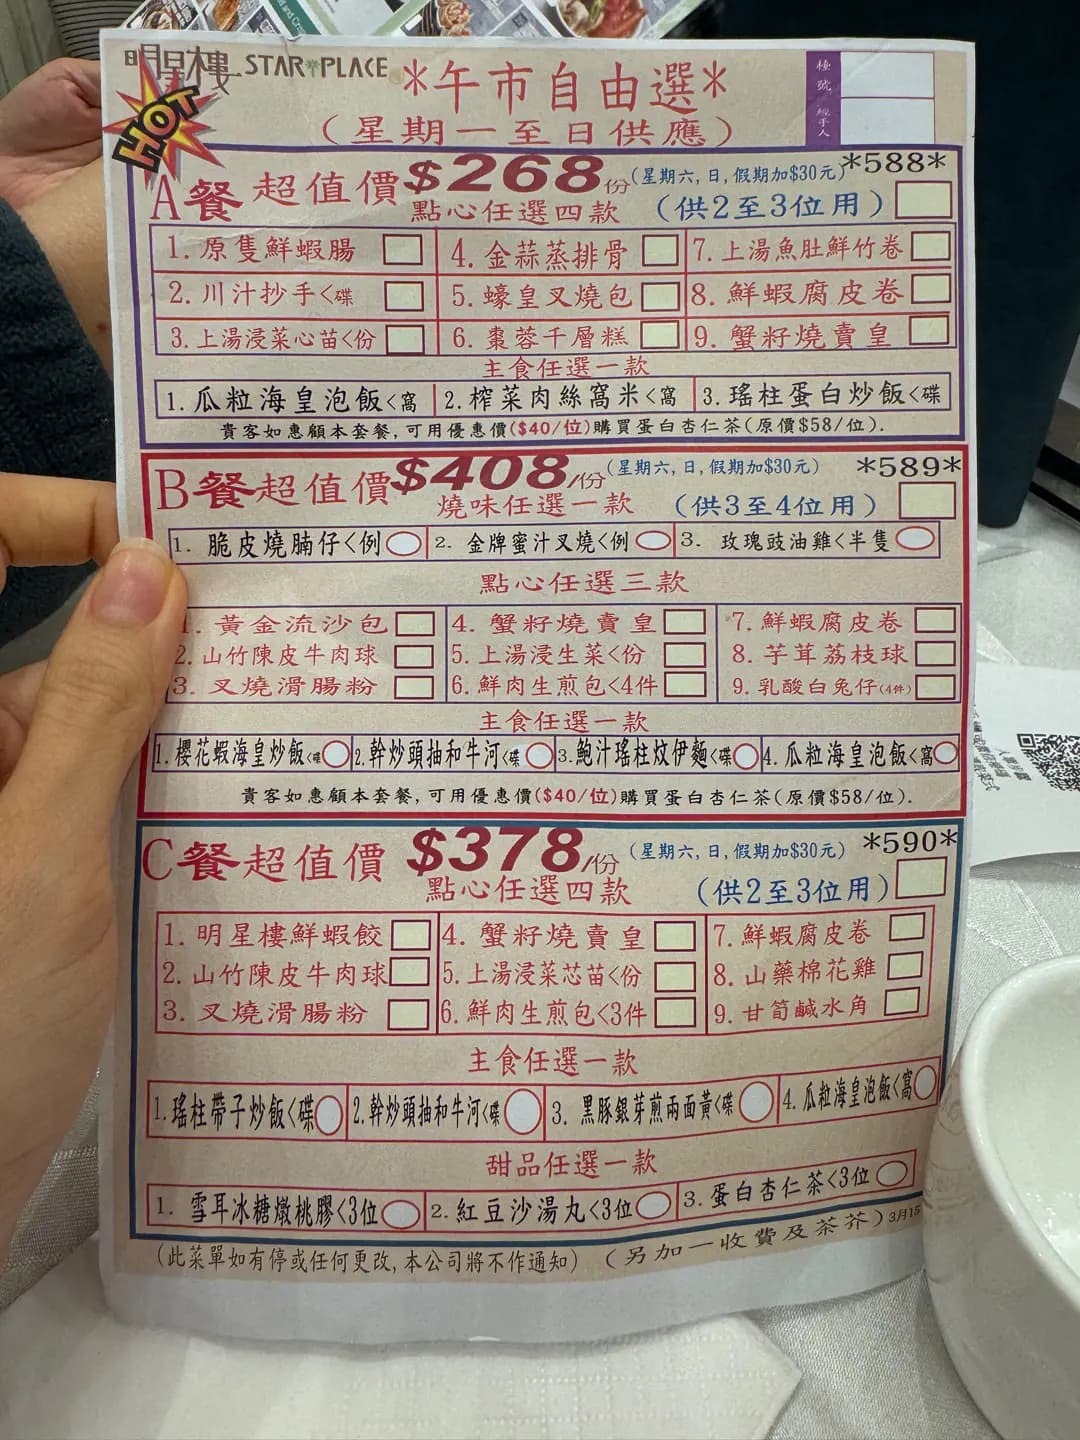 明星樓 STAR PLACE
*午市自由選*
(星期一至日供應)
檯號
經手人
HOT
A餐超值價$268/份(星期六,日,假期加$30元)*588*
點心任選四款 (供2至3位用)
1. 原隻鮮蝦腸 4. 金蒜蒸排骨 7. 上湯魚肚鮮竹卷
2. 川汁抄手<碟 5. 蠔皇叉燒包 8. 鮮蝦腐皮卷
3. 上湯浸菜心苗<份 6. 棗蓉千層糕 9. 蟹籽燒賣皇
主食任選一款
1. 瓜粒海皇泡飯<窩 2. 榨菜肉絲窩米<窩 3. 瑤柱蛋白炒飯<碟
貴客如惠顧本套餐,可用優惠價($40/位)購買蛋白杏仁茶(原價$58/位).
B餐超值價$408/份(星期六,日,假期加$30元) *589*
燒味任選一款 (供3至4位用)
1. 脆皮燒腩仔<例 2. 金牌蜜汁叉燒<例 3. 玫瑰豉油雞<半隻
點心任選三款
1. 黃金流沙包 4. 蟹籽燒賣皇 7. 鮮蝦腐皮卷
2. 山竹陳皮牛肉球 5. 上湯浸生菜<份 8. 芋茸荔枝球
3. 叉燒滑腸粉 6. 鮮肉生煎包<4件 9. 乳酸白兔仔(4件)
主食任選一款
1. 櫻花蝦海皇炒飯<碟 2. 幹炒頭抽和牛河<碟 3. 鮑汁瑤柱炆伊麵<碟 4. 瓜粒海皇泡飯<窩
貴客如惠顧本套餐,可用優惠價($40/位)購買蛋白杏仁茶(原價$58/位).
C餐超值價 $378/份 (星期六,日,假期加$30元) *590*
點心任選四款 (供2至3位用)
1. 明星樓鮮蝦餃 4. 蟹籽燒賣皇 7. 鮮蝦腐皮卷
2. 山竹陳皮牛肉球 5. 上湯浸菜芯苗<份 8. 山藥棉花雞
3. 叉燒滑腸粉 6. 鮮肉生煎包<3件 9. 甘筍鹹水角
主食任選一款
1. 瑤柱帶子炒飯<碟 2. 幹炒頭抽和牛河<碟 3. 黑豚銀芽煎兩面黃<碟 4. 瓜粒海皇泡飯<窩
甜品任選一款
1. 雪耳冰糖燉桃膠<3位 2. 紅豆沙湯丸<3位 3. 蛋白杏仁茶<3位
(此菜單如有停或任何更改,本公司將不作通知) (另加一收費及茶芥) 3月15